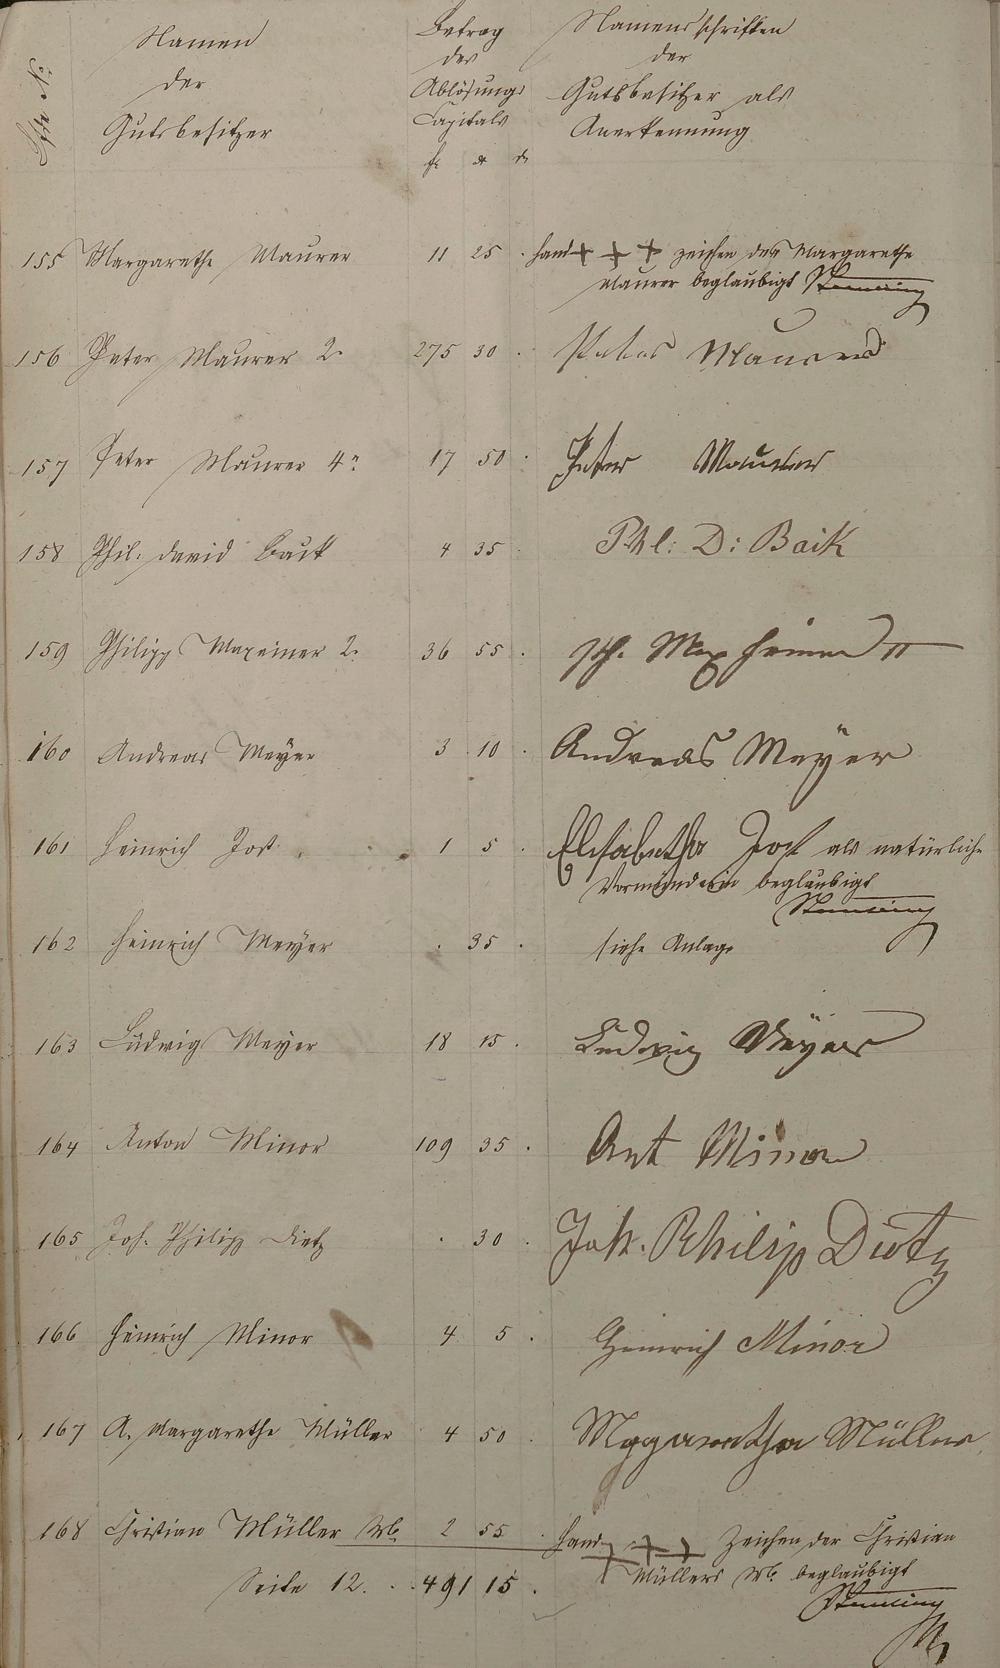 Namen
der
Gutsbesitzer
Betrag
des
Ablösungs
Capitals
f. x d.
Namensschriften
der
Gutsbesitzer als
Anerkennung
155 Margarethe Maurer 11 25 . Hand + + + zeichen der Margarethe
Maurer beglaubigt
156 Peter Maurer 2r 275 30 . Peter Maurer
157 Peter Maurer 4r 17 50 . Peter Maurer
158 Phil: David Back 4 35 . Phl: D: Baik
159 Philipp Maxeiner 2r 36 55 . Ph. Maxheimer II
160 Andreas Meÿer 3 10 . Andreas Meÿer
161 Heinrich Jost 1 5 . Elisabetha Jost als natürliche
Vormünderin beglaubigt
162 Heinrich Meÿer . 35 . siehe Anlage
163 Ludwig Meÿer 18 15 . Ludwig Meÿer
164 Anton Minor 109 35 . Ant Minor
165 Joh. Philipp Dietz . 30 . Joh. Philip Dietz
166 Heinrich Minor 4 5 . Heinrich Minor
167 A. Margarethe Müller 4 50 . Magaretha Müller
168 Christian Müller Wb. 2 55 . Hand + + + Zeichen der Christian
Müllers Wb. beglaubigt
Seite 12. . . 491 15 .